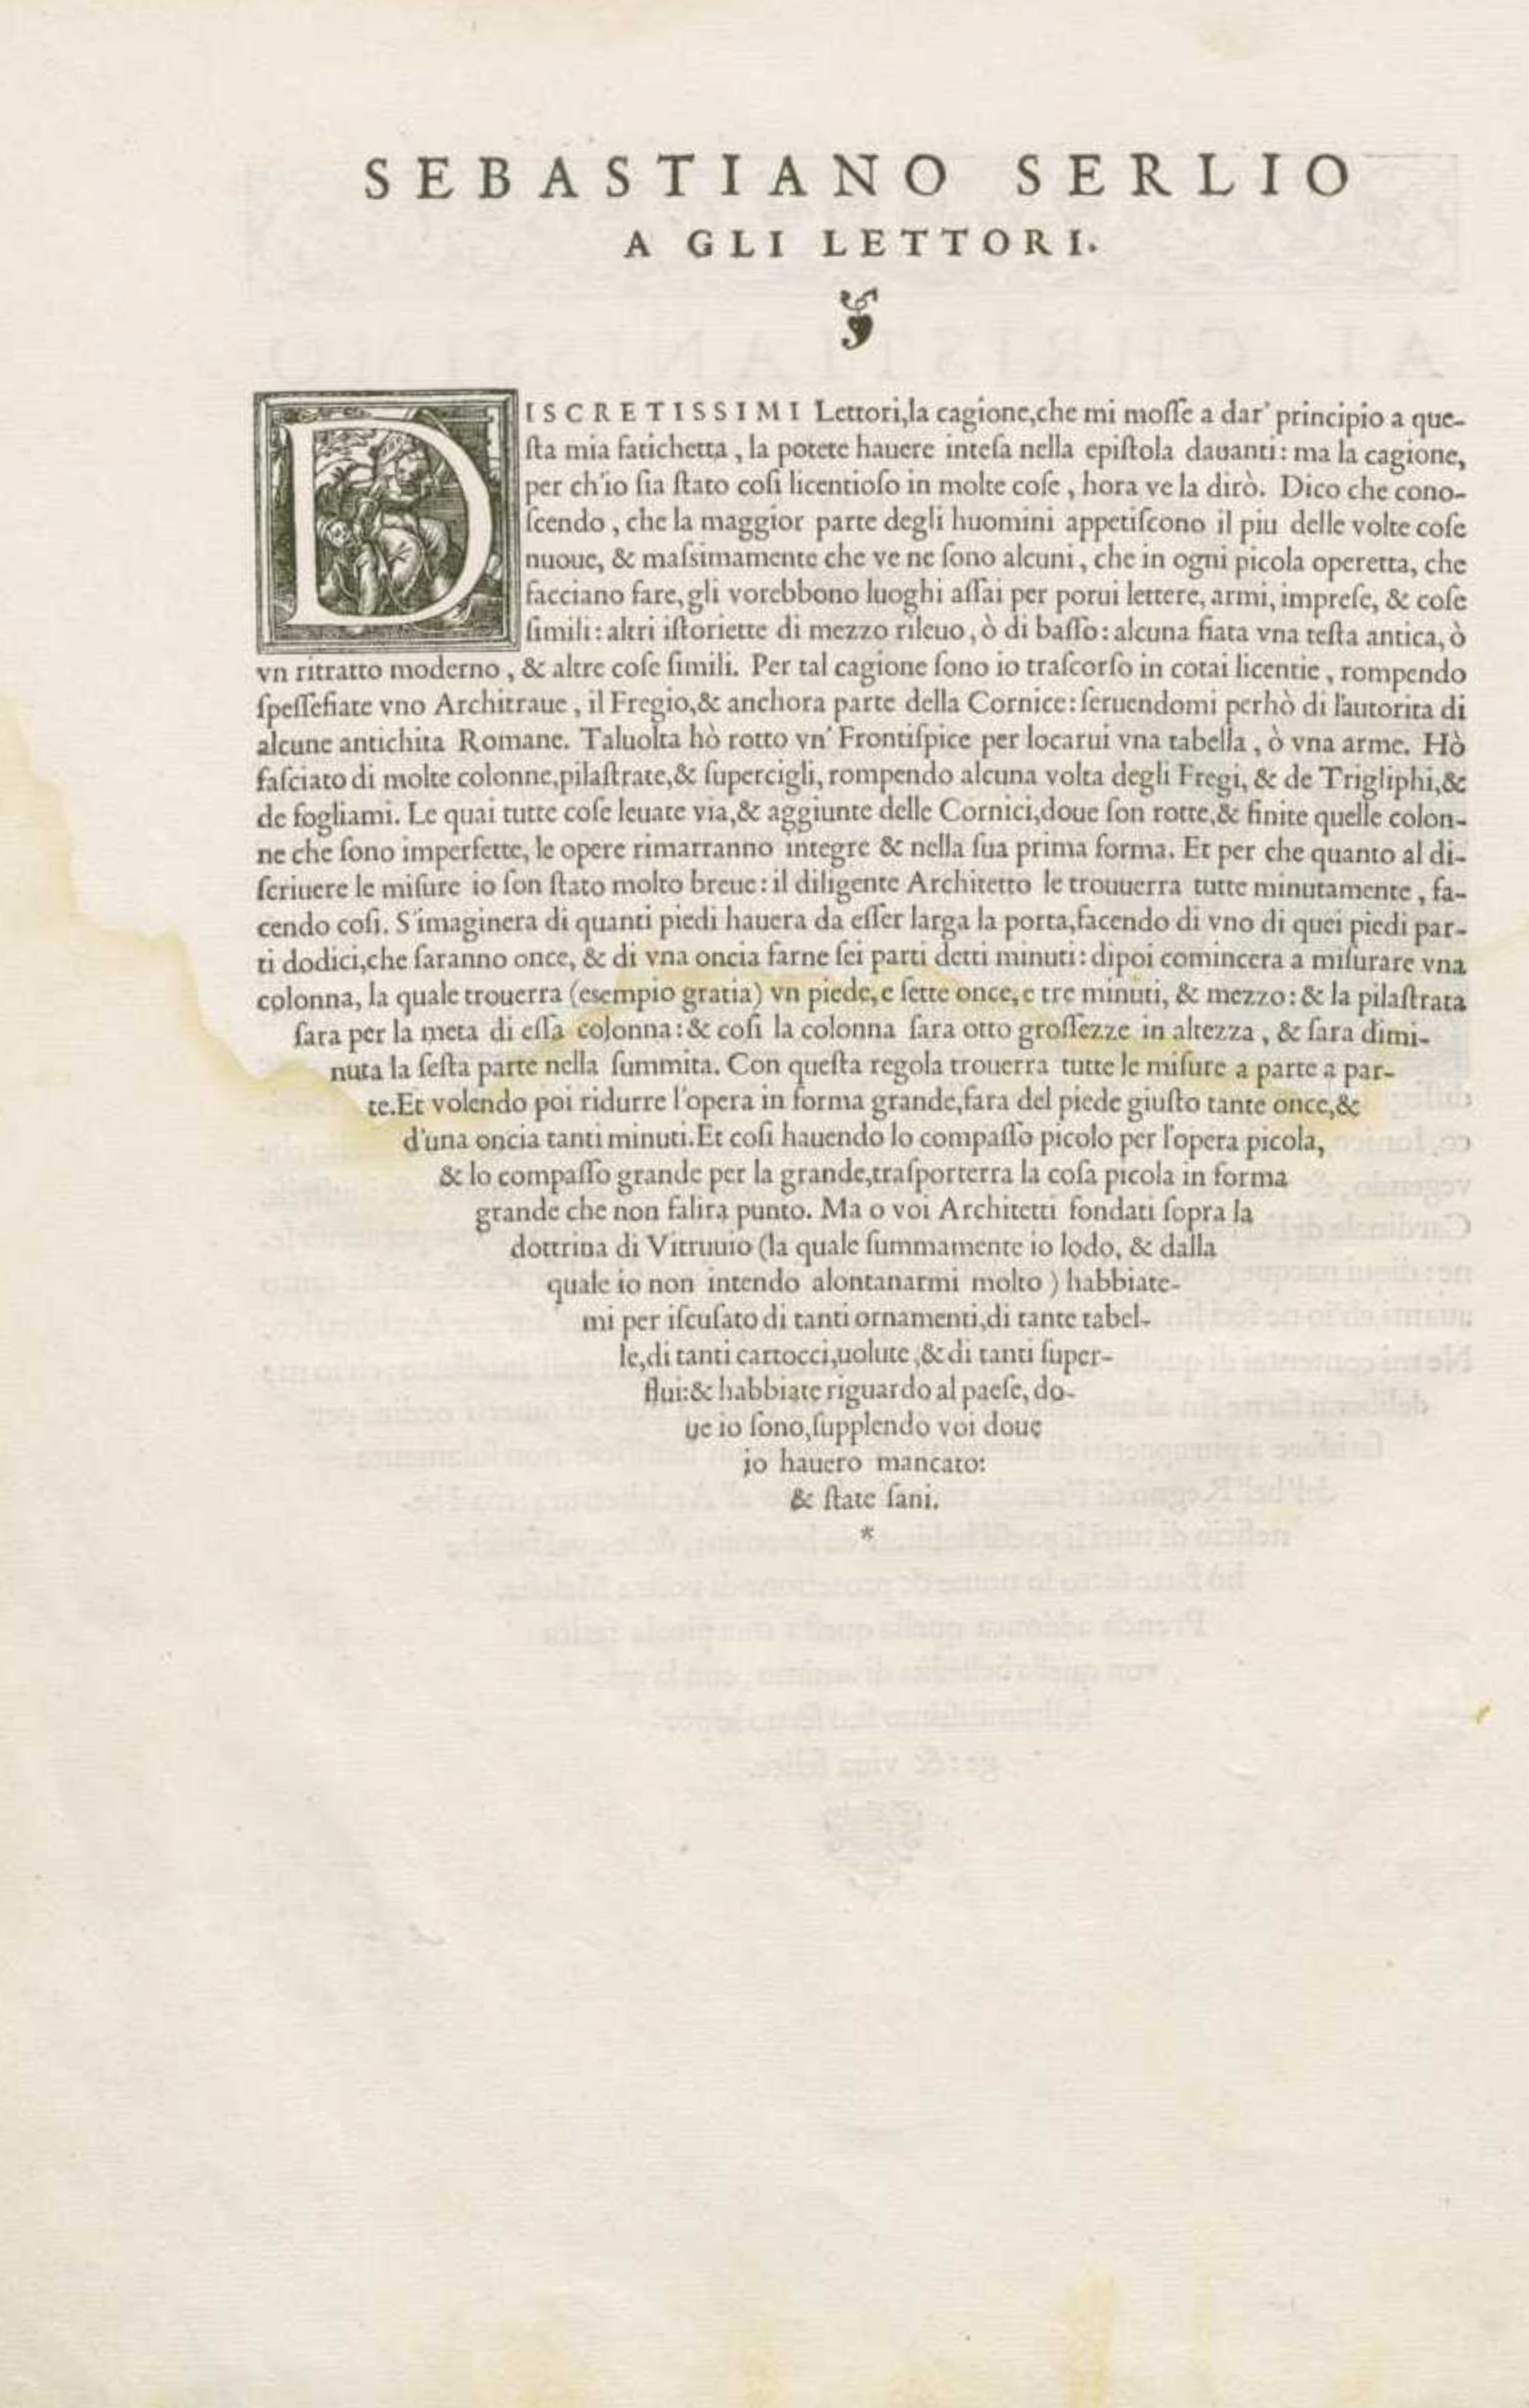 SEBASTIANO SERLIO
A GLI LETTORI.
DISCRETISSIMI Lettori,la cagione,che mi moſſe a dar' principio a que-
ſta mia fatichetta , la potete hauere inteſa nella epiſtola dauanti: ma la cagione,
per ch'io ſia ſtato coſi licentioſo in molte coſe , hora ve la dirò. Dico che cono-
ſcendo , che la maggior parte degli huomini appetiſcono il piu delle volte coſe
nuoue, & maſsimamente che ve ne ſono alcuni , che in ogni picola operetta, che
facciano fare, gli vorebbono luoghi aſſai per porui lettere, armi, impreſe, & coſe
ſimili: altri iſtoriette di mezzo rileuo, ò di baſſo: alcuna fiata vna teſta antica, ò
vn ritratto moderno , & altre coſe ſimili. Per tal cagione ſono io traſcorſo in cotai licentie , rompendo
ſpeſſefiate vno Architraue , il Fregio,& anchora parte della Cornice: ſeruendomi perhò di l'autorita di
alcune antichita Romane. Taluolta hò rotto vn' Frontiſpice per locarui vna tabella , ò vna arme. Hò
faſciato di molte colonne,pilaſtrate,& ſupercigli, rompendo alcuna volta degli Fregi, & de Trigliphi,&
de fogliami. Le quai tutte coſe leuate via,& aggiunte delle Cornici,doue ſon rotte,& finite quelle colon-
ne che ſono imperfette, le opere rimarranno integre & nella ſua prima forma. Et per che quanto al di-
ſcriuere le miſure io ſon ſtato molto breue: il diligente Architetto le trouuerra tutte minutamente , fa-
cendo coſi. S'imaginera di quanti piedi hauera da eſſer larga la porta,facendo di vno di quei piedi par-
ti dodici,che ſaranno once, & di vna oncia farne ſei parti detti minuti: dipoi comincera a miſurare vna
colonna, la quale trouerra (esempio gratia) vn piede, e ſette once, e tre minuti, & mezzo: & la pilaſtrata
ſara per la meta di eſſa colonna: & coſi la colonna ſara otto groſſezze in altezza , & ſara dimi-
nuta la ſeſta parte nella ſummita. Con queſta regola trouerra tutte le miſure a parte a par-
te.Et volendo poi ridurre l'opera in forma grande,fara del piede giuſto tante once,&
d'una oncia tanti minuti.Et coſi hauendo lo compaſſo picolo per l'opera picola,
& lo compaſſo grande per la grande,traſporterra la coſa picola in forma
grande che non falira punto. Ma o voi Architetti fondati ſopra la
dottrina di Vitruuio (la quale ſummamente io lodo, & dalla
quale io non intendo alontanarmi molto ) habbiate-
mi per iſcuſato di tanti ornamenti,di tante tabel-
le,di tanti cartocci,uolute ,& di tanti ſuper-
flui:& habbiate riguardo al paeſe, do-
ue io ſono,ſupplendo voi doue
io hauero mancato:
& ſtate ſani.
*